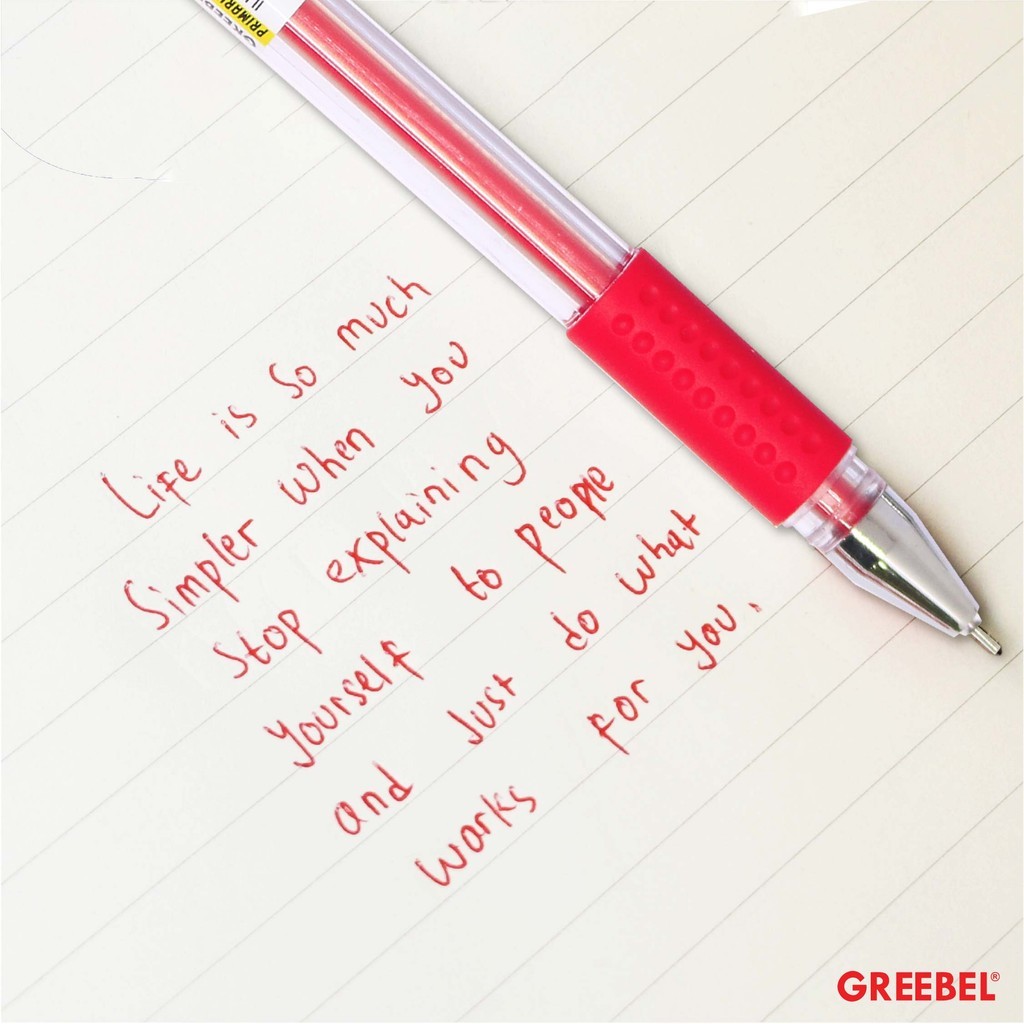 PRIMARY
Life is so much
Simpler when you
Stop explaining
Yourself to people
and Just do what
works for you.
GREEBEL®